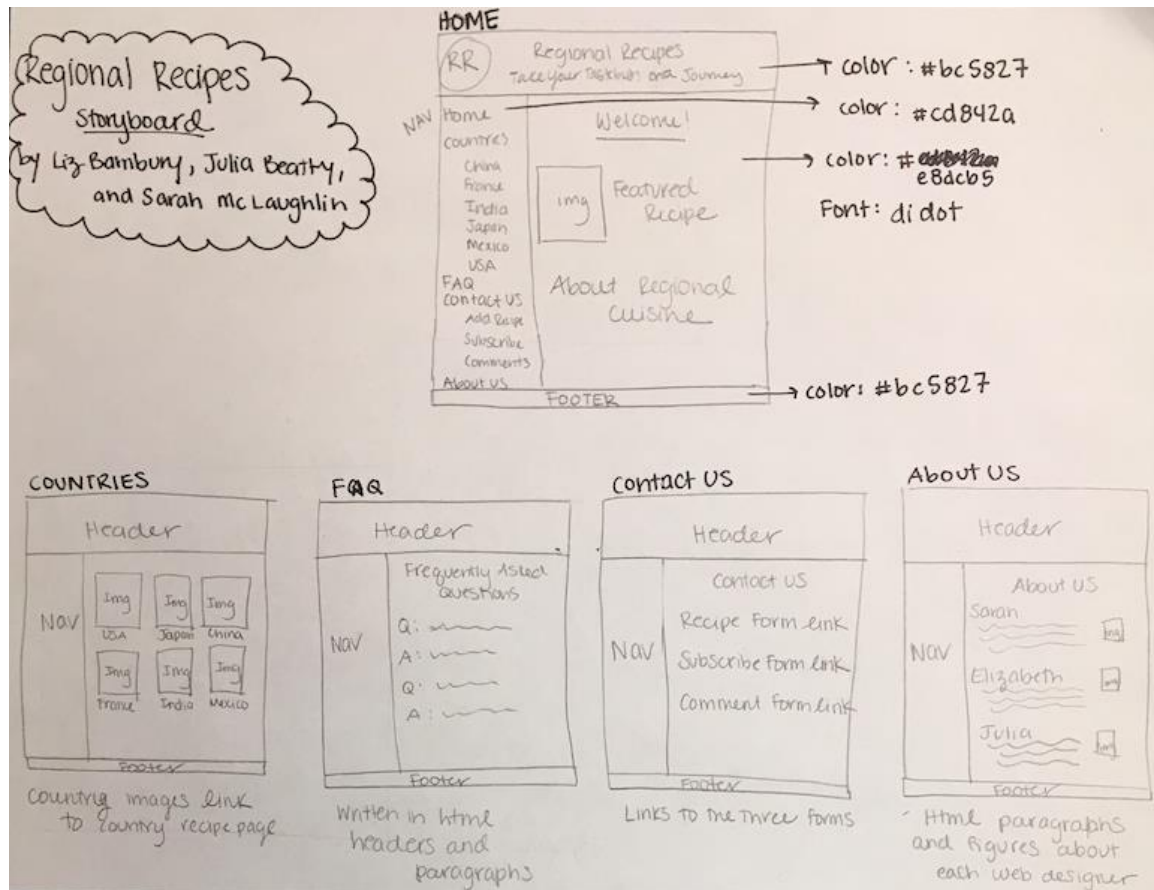 Regional Recipes
Storyboard
by Liz Bambury, Julia Beatty,
and Sarah McLaughlin
HOME
RR
Regional Recipes
Take Your on a Journey
NAV
Home
Countries
China
France
India
Japan
Mexico
USA
FAQ
Contact US
Add Recipe
Subscribe
Comments
About US
Welcome!
img
Featured
Recipe
About Regional
Cuisine
FOOTER
color: #bc5827
color: #cd842a
color: #
e8dcb5
Font: didot
color: #bc5827
COUNTRIES
Header
Nav
Img
Img
Img
USA
Japan
China
Img
Img
Img
France
India
Mexico
Footer
Country images link
to country recipe page
FAQ
Header
Nav
Frequently Asked
Questions
Q:
A:
Q:
A:
Footer
Written in html
headers and
paragraphs
Contact US
Header
Nav
Contact US
Recipe Form link
Subscribe Form link
Comment Form link
Footer
Links to the three forms
About US
Header
Nav
About US
Sarah
img
Elizabeth
img
Julia
img
Footer
Html paragraphs
and figures about
each web designer